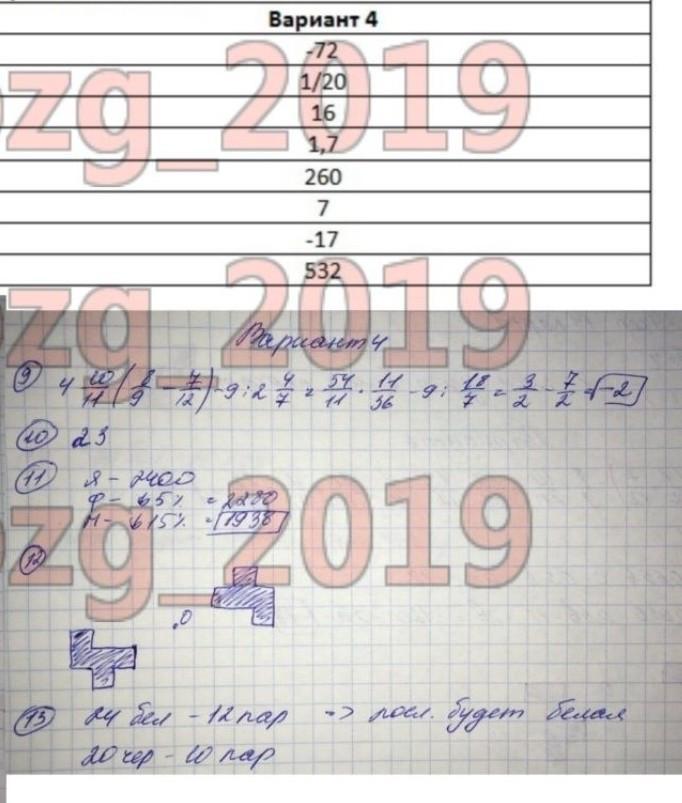 Вариант 4
-72
1/20
16
1,7
260
7
-17
532
ozg_2019
ozg_2019
ozg_2019
Вариант 4
9 4 10/11 (8/9 - 7/12) - 9 : 2 4/7 = 54/11 · 11/36 - 9 : 18/7 = 3/2 - 7/2 = -2
10 23
11 Я - 2400
Ф - ↓5% = 2280
М - ↓15% = 1938
12
O
13 24 бел - 12 пар => посл. будет белая
20 чер - 10 пар